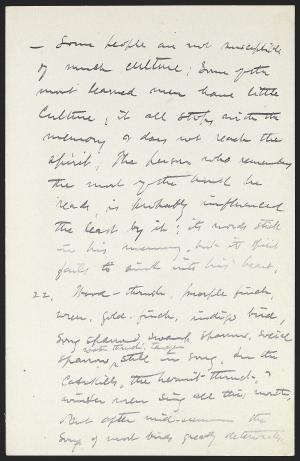 — Some people are not susceptible
of much culture; Some of the
most learned men have little
Culture; it all stops with the
memory & does not reach the
spirit; The person who remembers
the most of the books he
reads, is probably influenced
the least by it; its words stick
in his memory, but its spirit
fails to sink into his heart.
22. Wood-thrush, purple finch,
wren, gold-finch, indigo bird,
Song sparrow, swamp sparrow, social
sparrow, still in song. In the
Catskills, the hermit-thrush, &
winter wren sing all this month,
But after mid-summer the
Songs of most birds greatly deteriorate